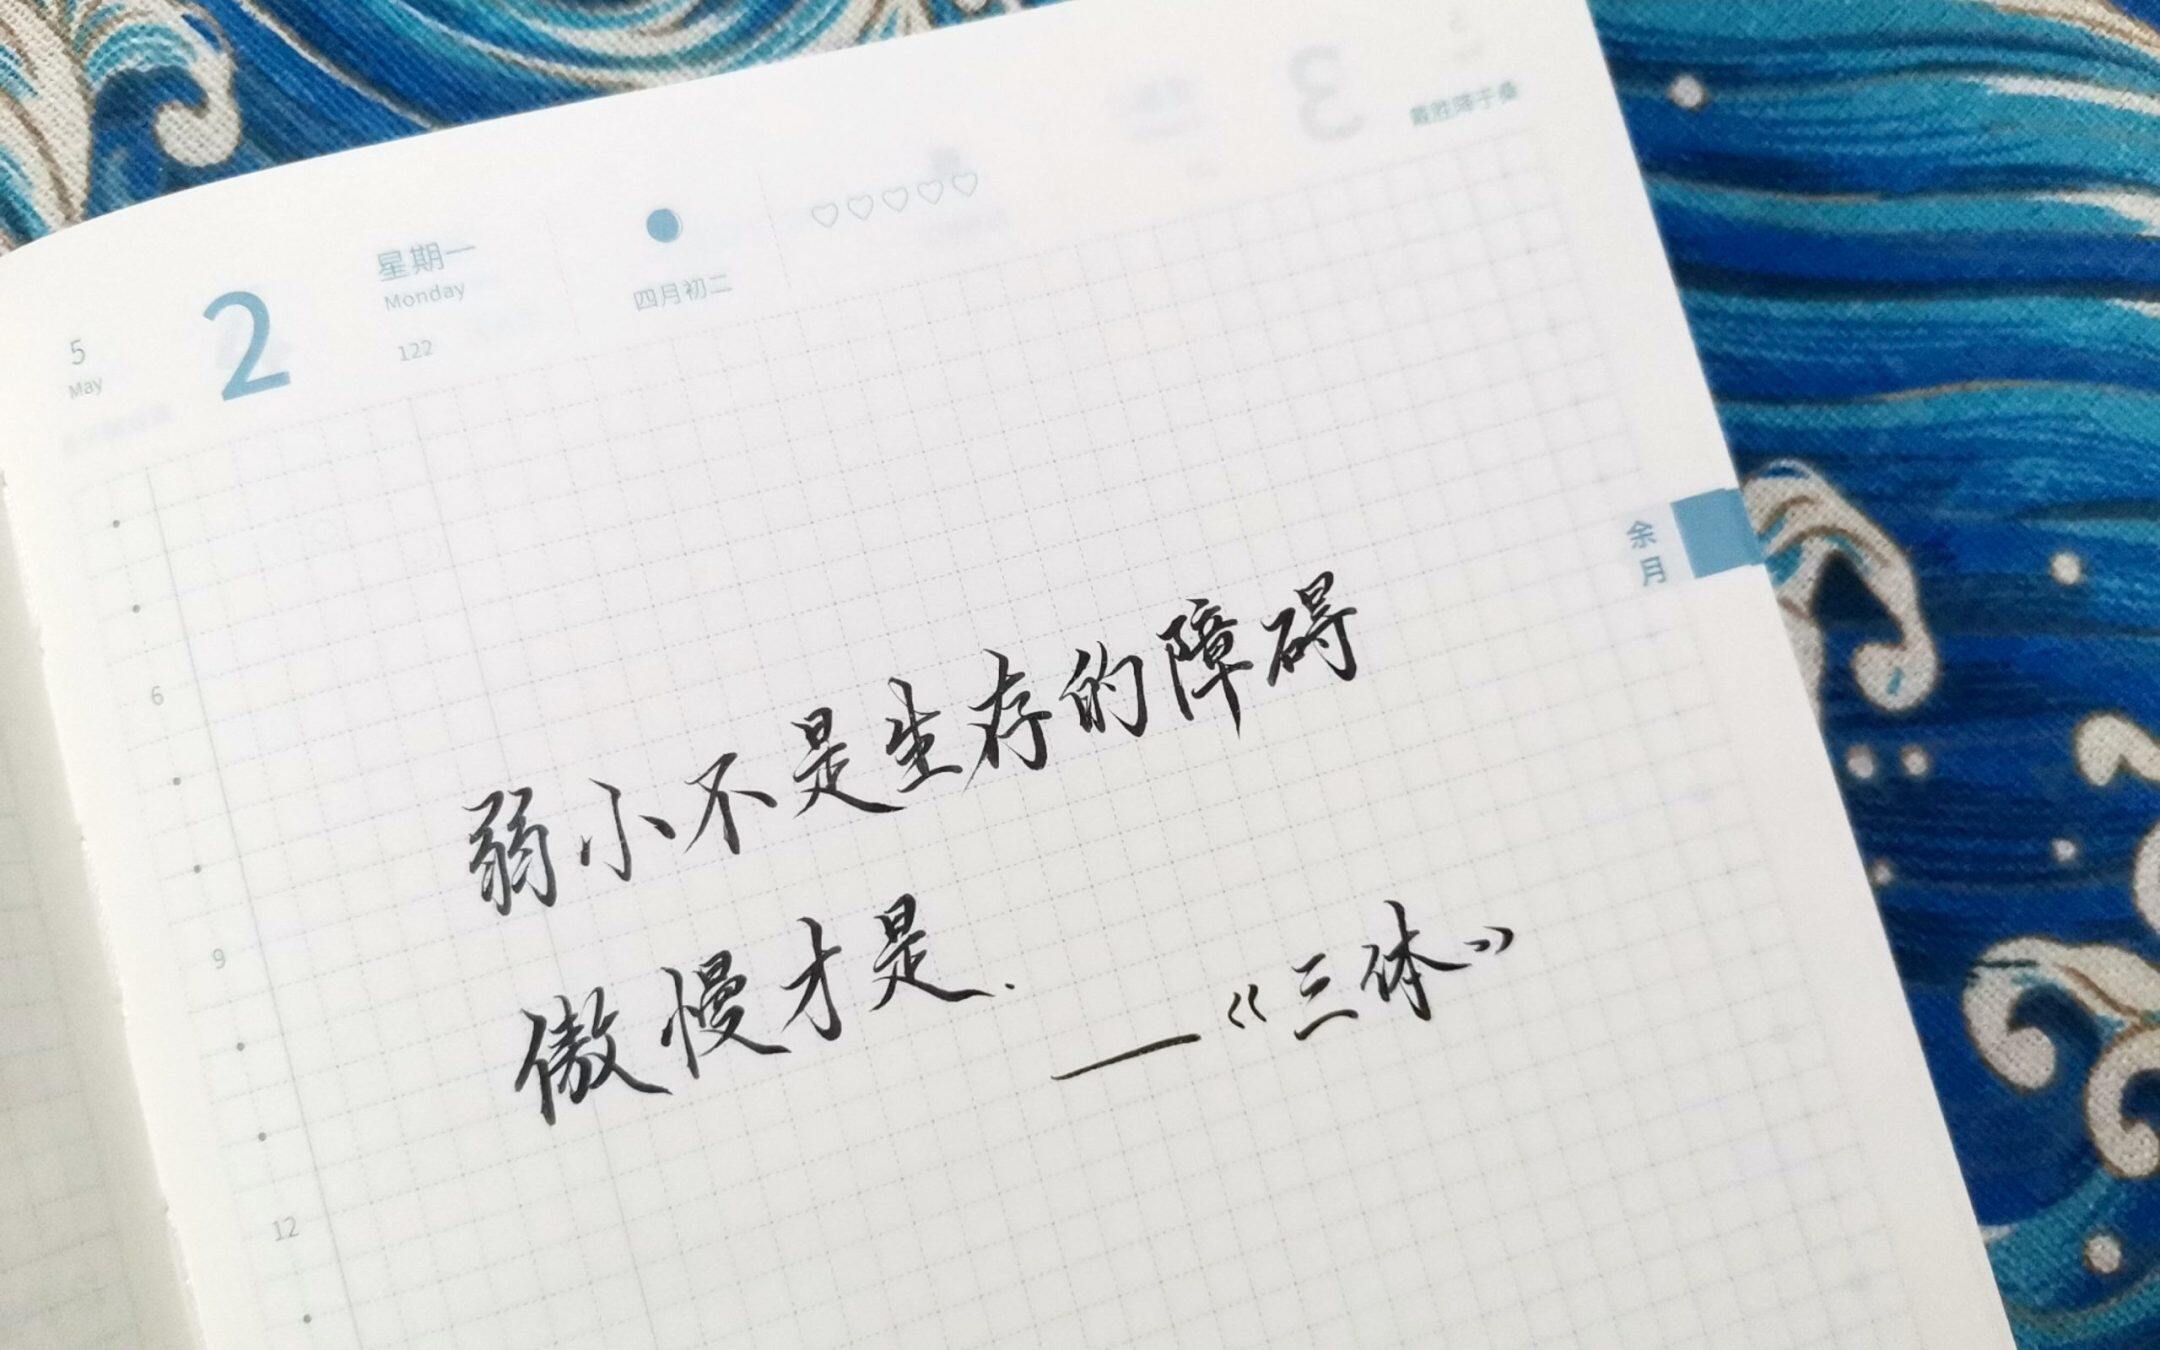 5
May
2
星期一
Monday
122
四月初二
3
戴胜降于桑
余月
6
9
12
弱小不是生存的障碍
傲慢才是.
——《三体》